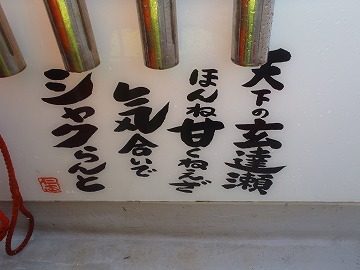 天下の玄達瀬
ほんね甘くねえざ
気合いで
シャクらんと